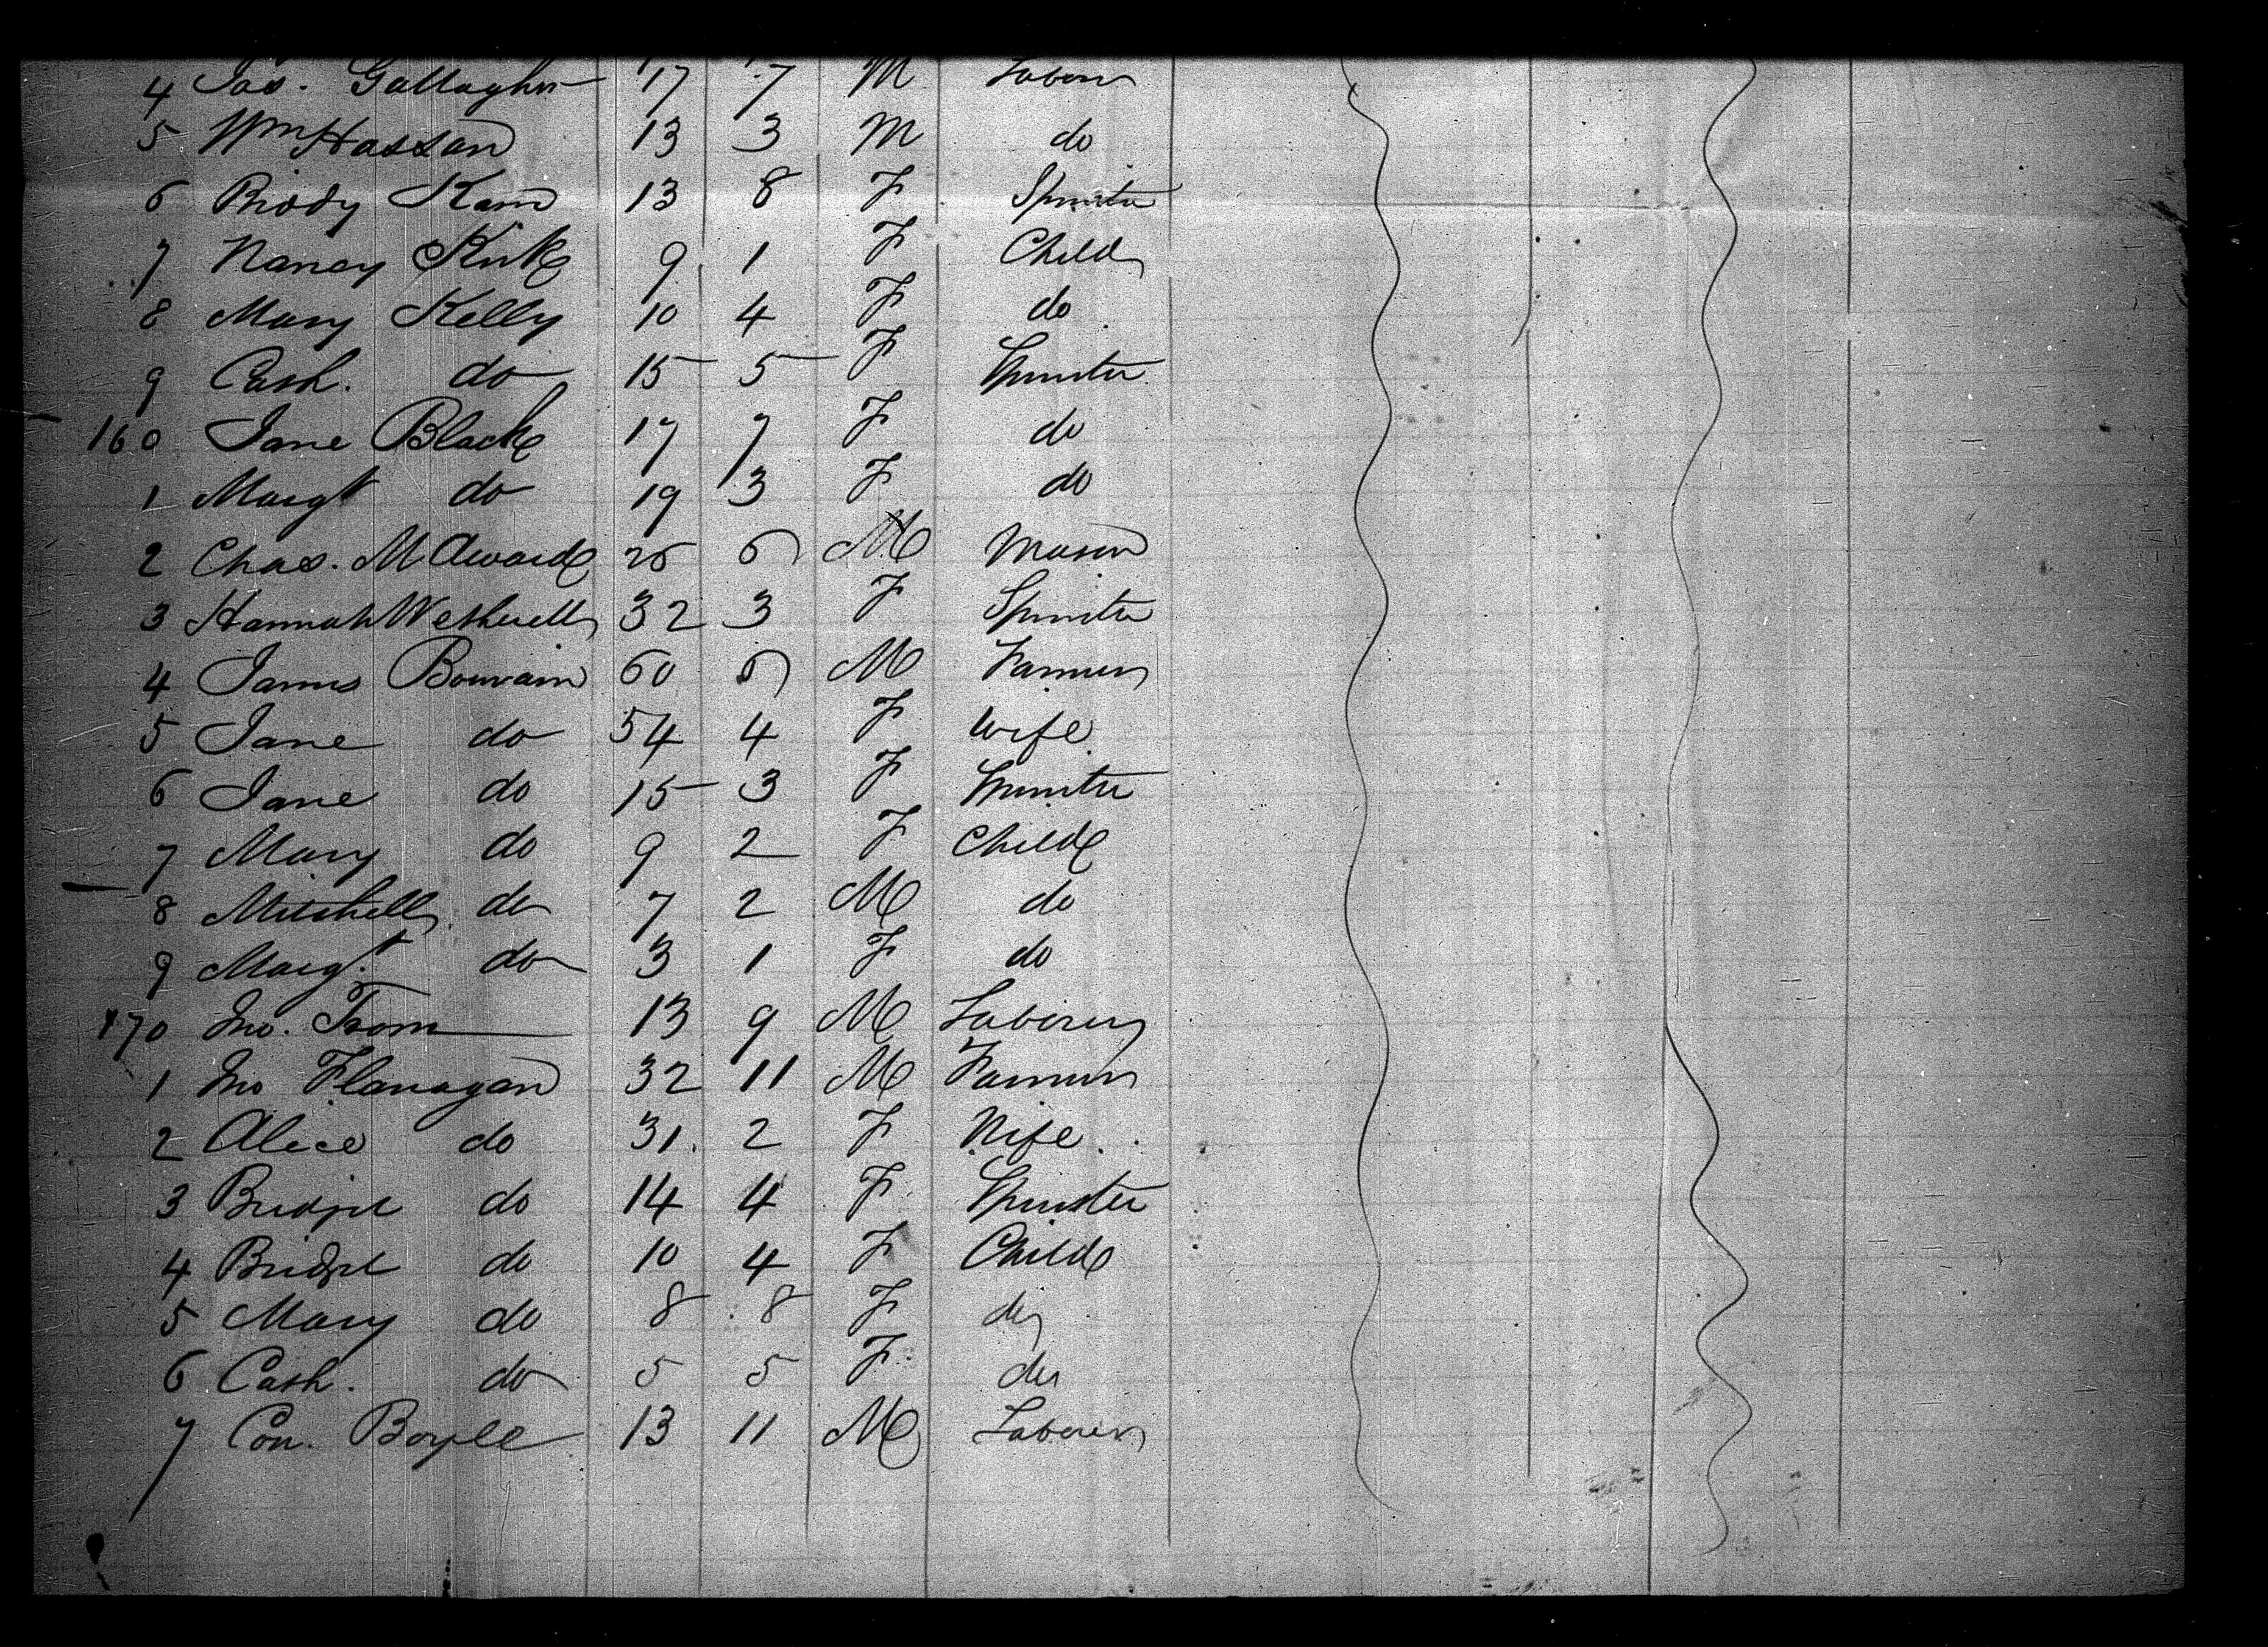 4 Jas. Gallagher 17 7 M Labore
5 Wm Hassan 13 3 M do
6 Briddy Kain 13 8 F Spinster
7 Nancy Kirk 9 1 F Child
8 Mary Kelly 10 4 F do
9 Cath. do 15 5 F Spinster
160 Jane Black 17 7 F do
1 Margt do 19 3 F do
2 Chas. McAward 26 6 M Mason
3 Hannah Wetherell 32 3 F Spinster
4 James Bouvain 60 6 M Farmer
5 Jane do 54 4 F Wife
6 Jane do 15 3 F Spinster
7 Mary do 9 2 F Child
8 Mitchell do 7 2 M do
9 Margt. do 3 1 F do
170 Jno. 13 9 M Laborer
1 Jno Flanagan 32 11 M Farmer
2 Alice do 31. 2 F Wife
3 Bridget do 14 4 F Spinster
4 Bridget do 10 4 F Child
5 Mary do 8 8 F do
6 Cath. do 5 5 F do
7 Con. Boyle 13 11 M Laborer